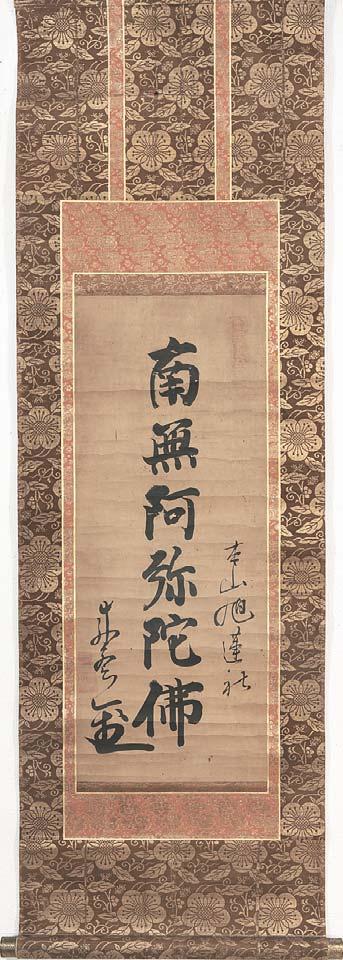 本山旭蓮社
南無阿弥陀佛